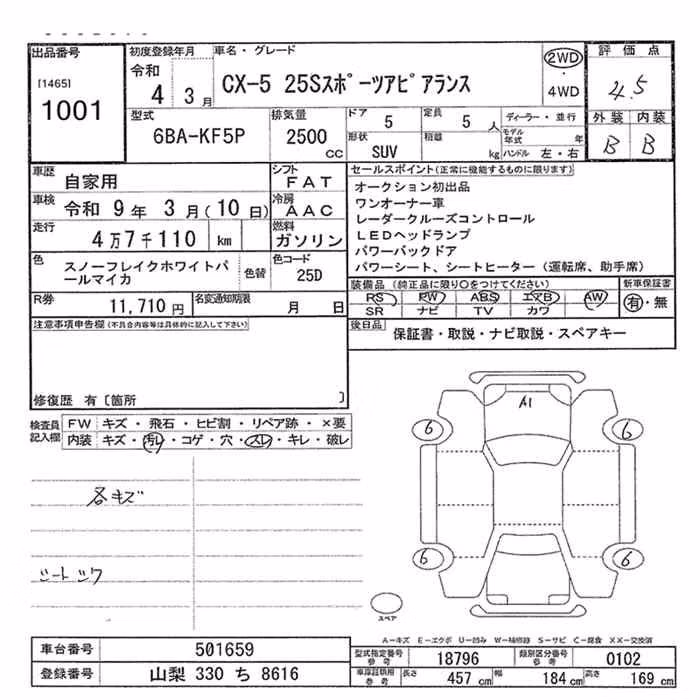 出品番号 初度登録年月 車名・グレード 評価点
[1465] 令和 2WD
1001 4 3月 CX-5 25Sスポーツアピアランス ・ 4.5
4WD
型式 排気量 ドア 5 定員 5人 ディーラー・並行 外装 内装
6BA-KF5P 2500cc 形状 SUV 積雑 kg モデル年式 年 B B
ハンドル 左・右
車歴 自家用 シフト FAT セールスポイント(正常に機能するものに限ります)
車検 令和 9年 3月(10日) 冷房 AAC オークション初出品
ワンオーナー車
走行 4万7千110 km 燃料 ガソリン レーダークルーズコントロール
LEDヘッドランプ
色 スノーフレイクホワイトパールマイカ 色替 色コード 25D パワーバックドア
パワーシート、シートヒーター(運転席、助手席)
装備品(純正品に限り○をつけてください) 新車保証書
R券 11,710円 名変通知期限 月 日 PS PW ABS エアB AW 有・無
SR ナビ TV カワ
注意事項申告欄(不具合内容等は具体的に記入して下さい) 後日品 保証書・取説・ナビ取説・スペアキー
修復歴 有[箇所 ]
検査員記入欄 FW キズ・飛石・ヒビ割・リペア跡・×要
内装 キズ・汚レ・コゲ・穴・スレ・キレ・破レ
A1
6 6
各キズ
6 6
シートシワ
スペア
A-キズ E-エクボ U-凹み W-補修跡 S-サビ C-腐食 XX-交換済
車台番号 501659 型式指定番号 参考 18796 類別区分番号 参考 0102
登録番号 山梨 330 ち 8616 車庫証明用 参考 長さ 457cm 幅 184cm 高さ 169cm